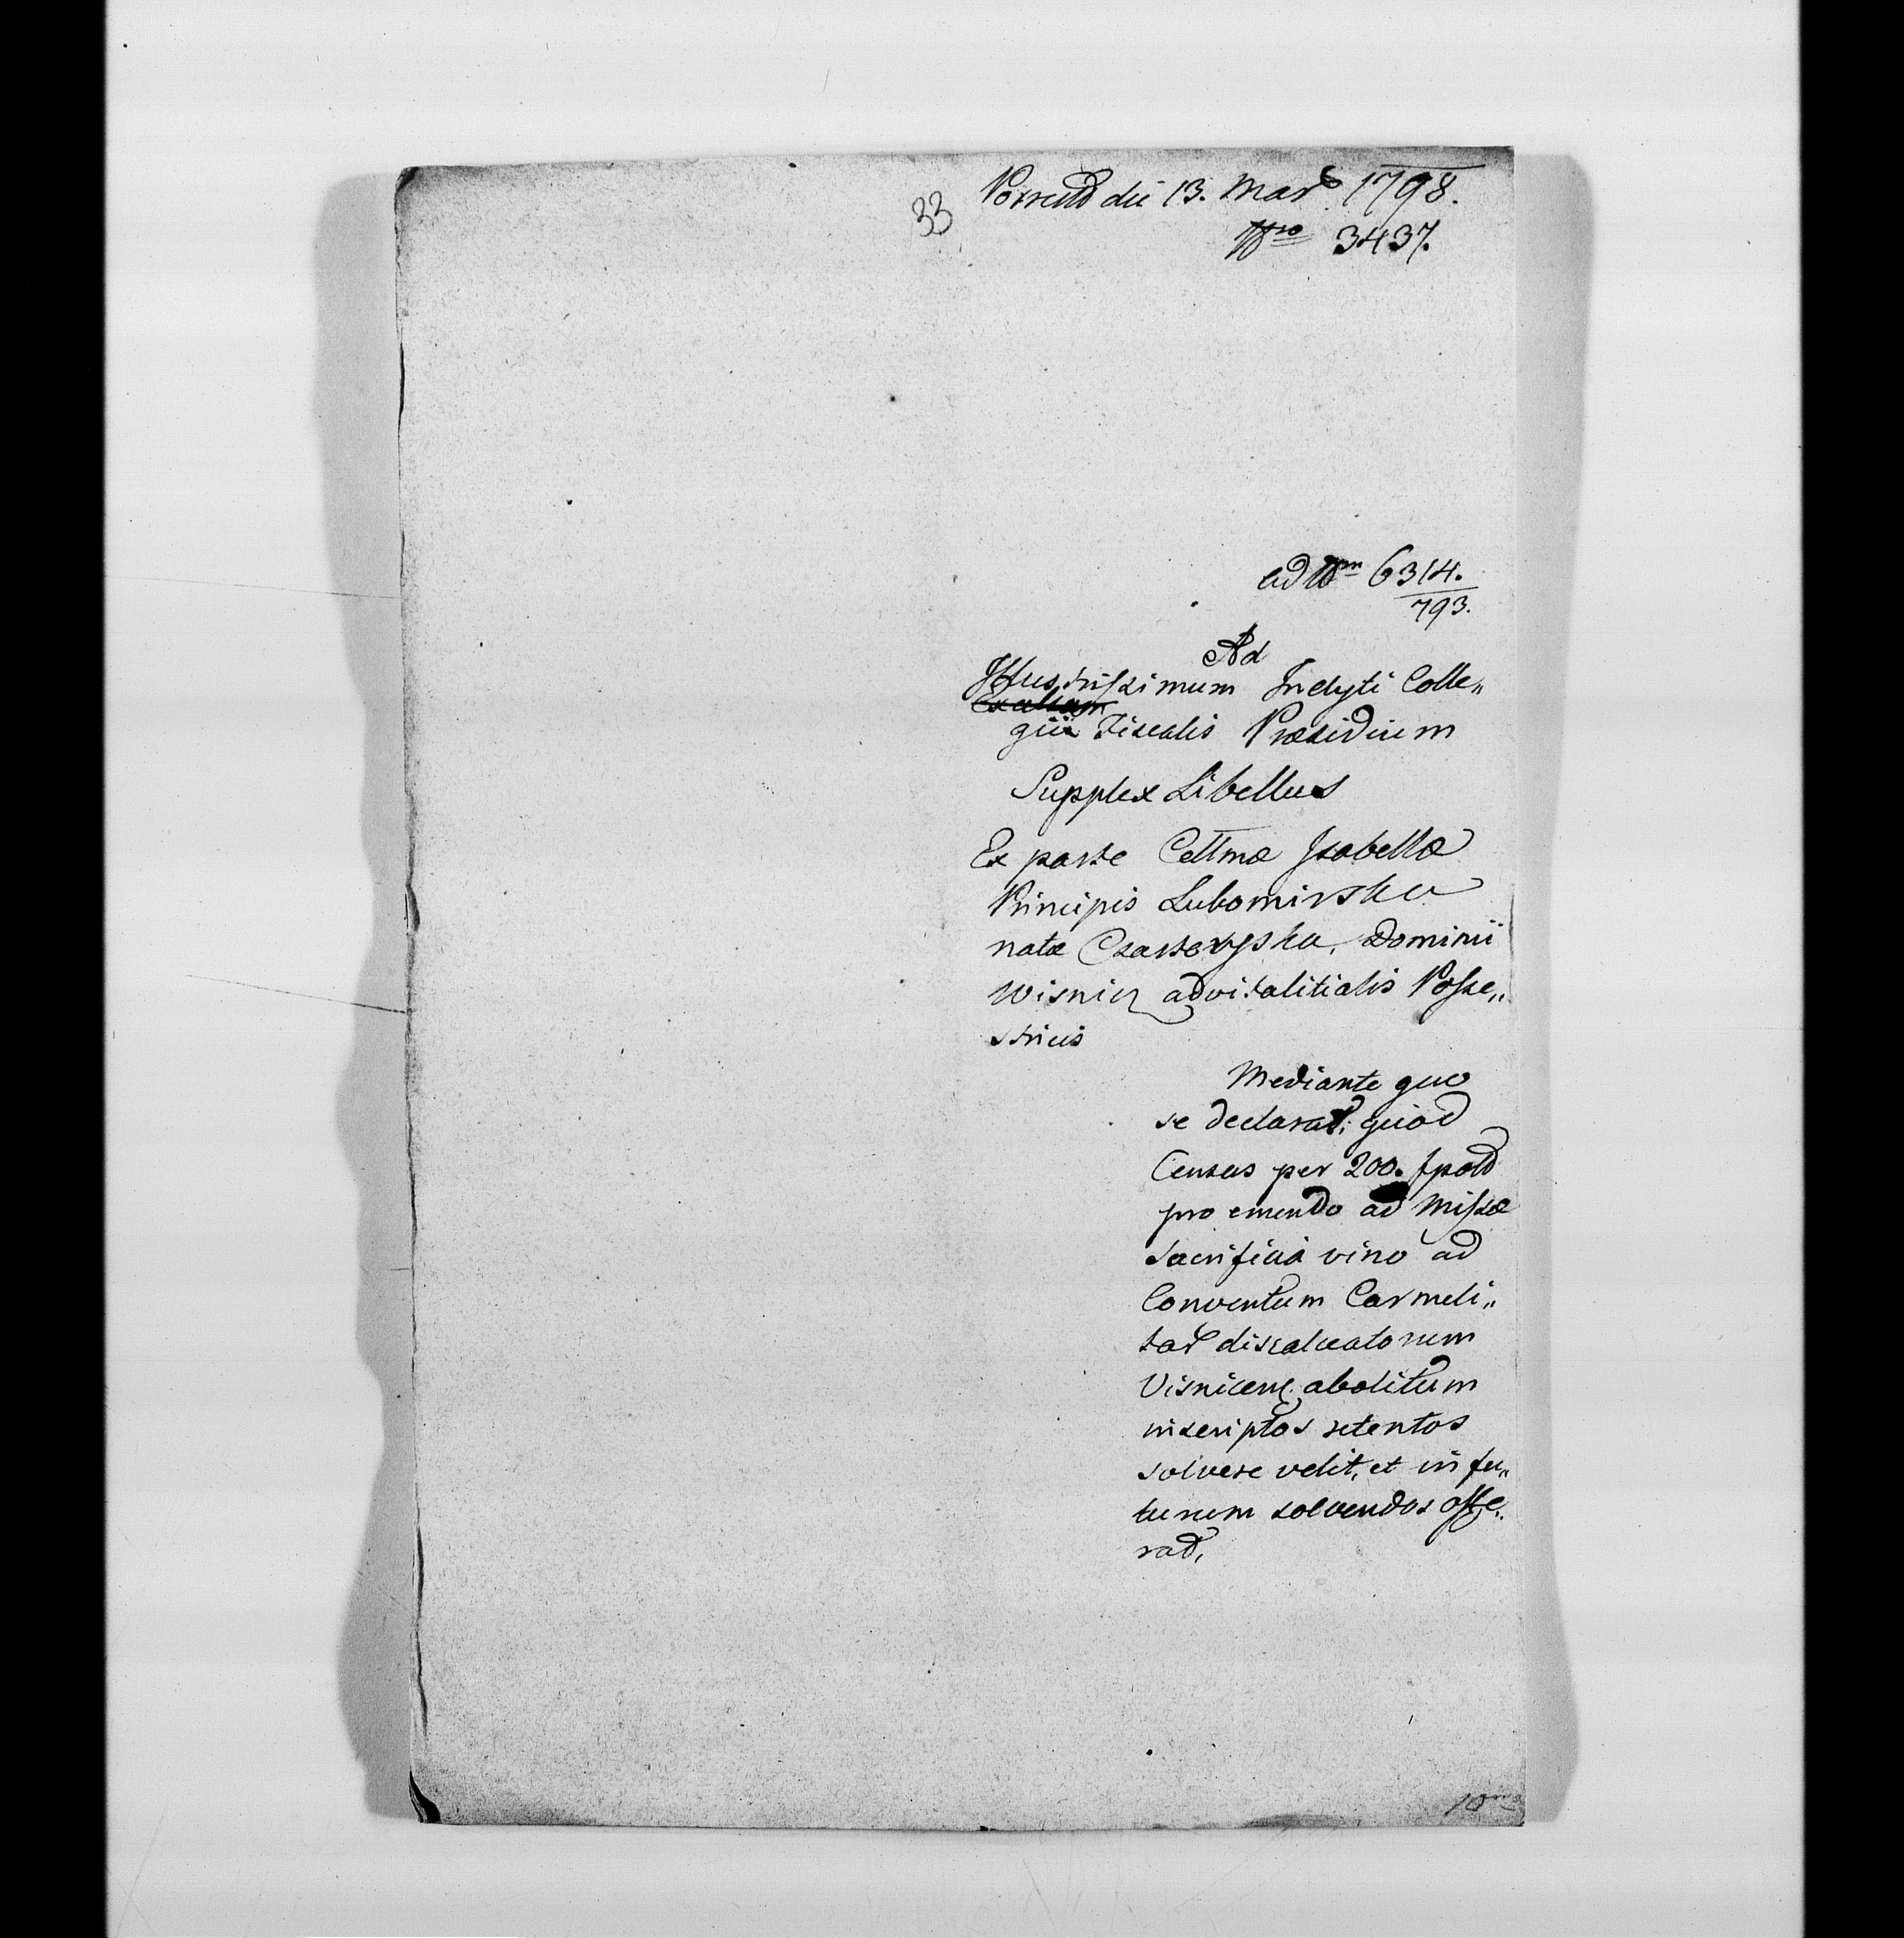 33
Porrectd die 13. Mart 1798.
Nro 3437.
ad Nrm 6314.
793.
Ad
Illustrissimum Inclyti Colle„
Excelsum
gii Fiscalis Præsidium
Supplex Libellus
Ex parte Celtmæ Isabellæ
Principis Lubomirska
natæ Czartoryska, Dominii
Wisnicz advitalitialis Posse„
stricis
Mediante quo
se declarat; quod
Census per 200. fpold
pro emendo ad Missæ
Sacrificia vino ad
Conventum Carmeli„
tar discalceatorum
Visnicens abolitum
inscriptos retentos
solvere velit, et in fu„
turum solvendos offe„
rat,